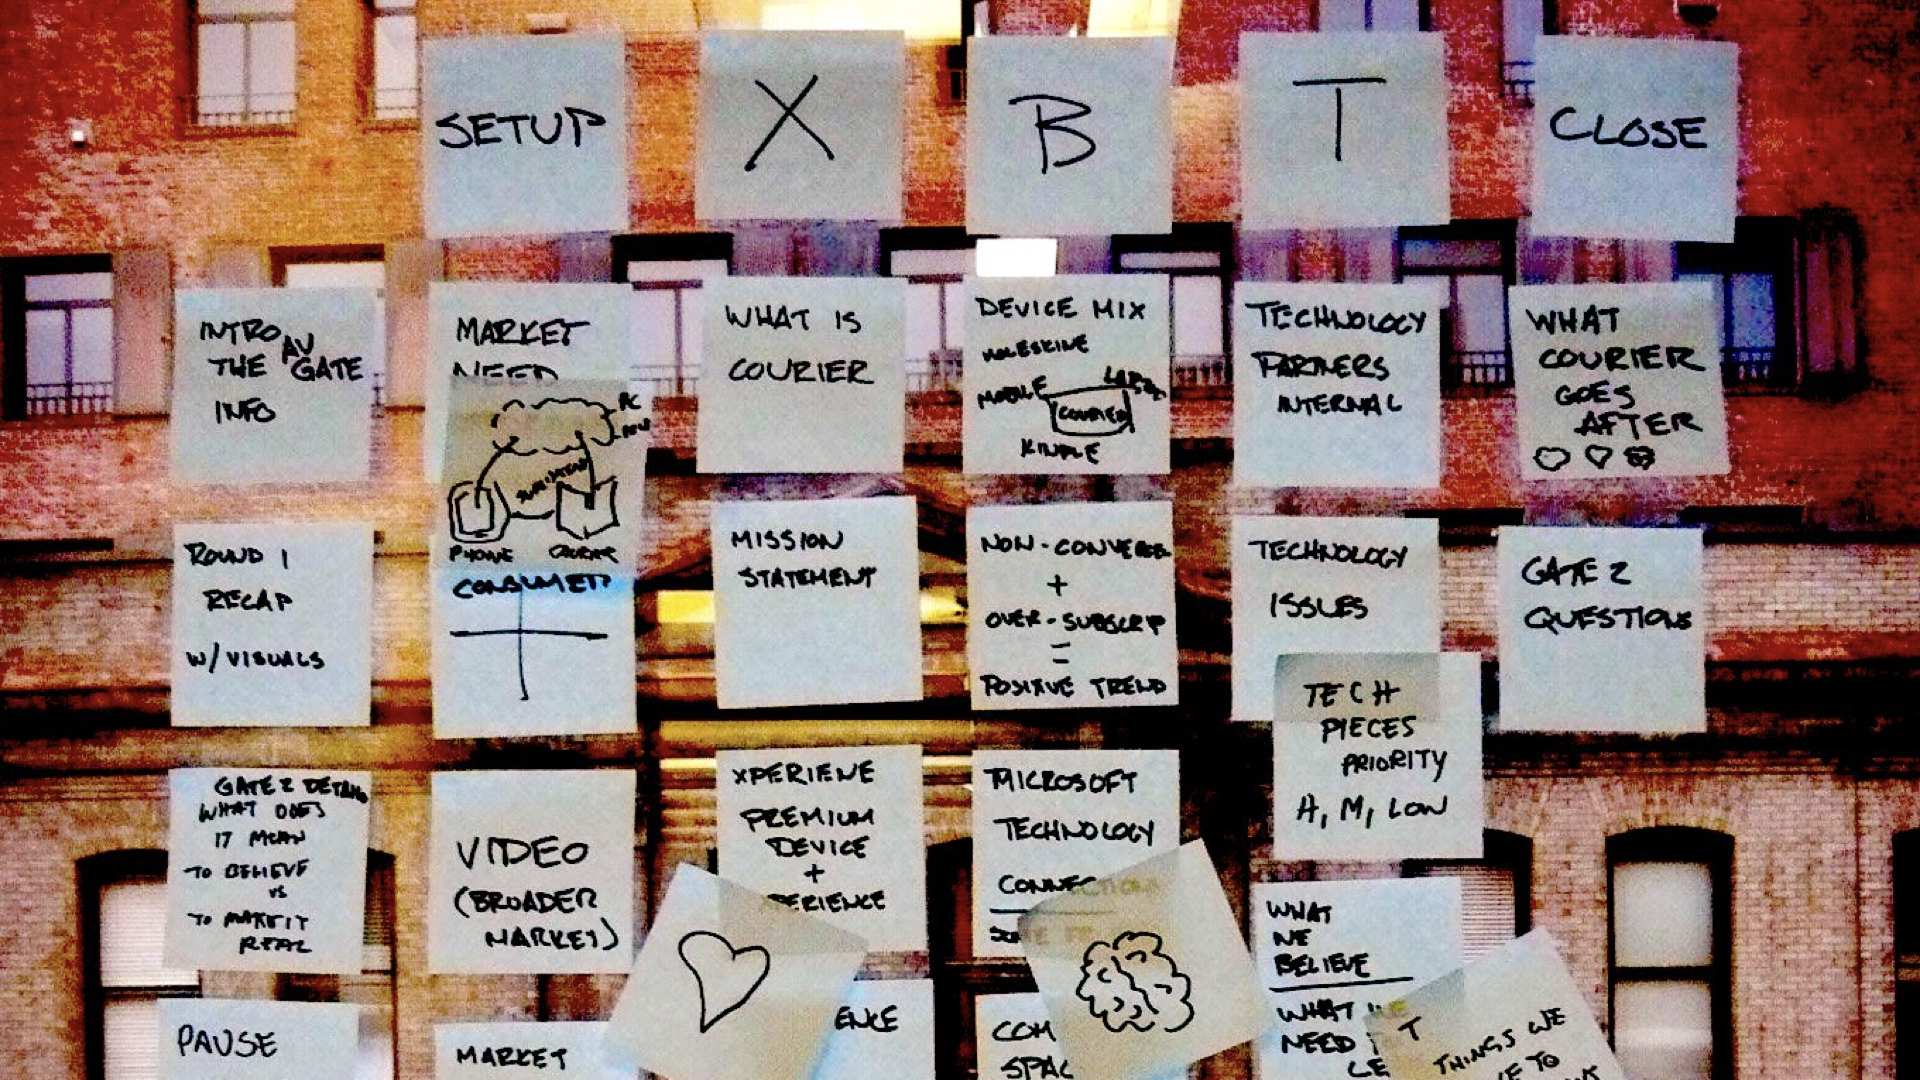 SETUP
X
B
T
CLOSE
INTRO AV
THE GATE
INFO
MARKET
NEED
PC
PHONE
CONSUMER
WHAT IS
COURIER
DEVICE MIX
MOLESKINE
MOBILE
COURIER
KINDLE
TECHNOLOGY
PARTNERS
INTERNAL
WHAT
COURIER
GOES
AFTER
ROUND 1
RECAP
W/ VISUALS
MISSION
STATEMENT
NON-CONVERG
+
OVER-SUBSCRIP
=
POSITIVE TREND
TECHNOLOGY
ISSUES
TECH
PIECES
PRIORITY
H, M, LOW
GATE 2
QUESTIONS
GATE 2 DETAILS
WHAT DOES
IT MEAN
TO BELIEVE
VS
TO MAKE IT
REAL
VIDEO
(BROADER
MARKET)
XPERIENE
PREMIUM
DEVICE
+
PERIENCE
MICROSOFT
TECHNOLOGY
CONNECTIONS
WHAT
WE
BELIEVE
WHAT WE
NEED
LE
T
THINGS WE
VE TO
PAUSE
MARKET
ENCE
COM
SPAC